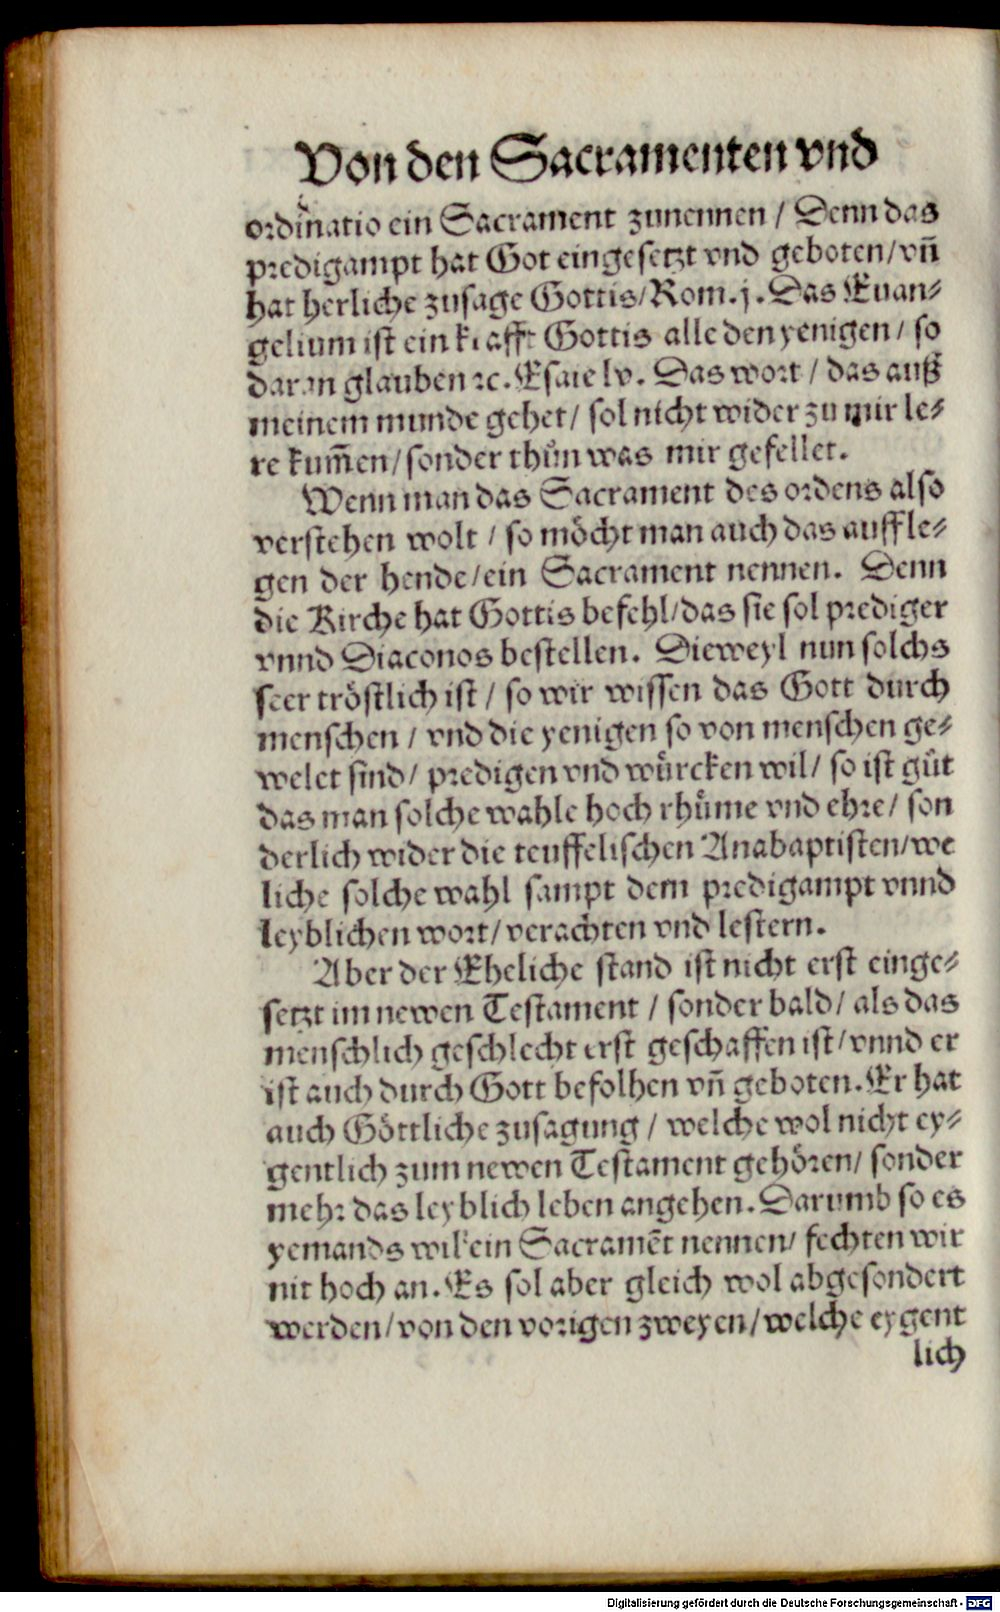 Von den Sacramenten vnd
ordinatio ein Sacrament zunennen / Denn das
predigampt hat Got eingesetzt vnd geboten/vn̄
hat herliche zusage Gottis/Rom.j. Das Euan⸗
gelium ist ein krafft Gottis alle den yenigen / so
daran glauben ꝛc. Esaie lv. Das wort / das auß
meinem munde gehet/ sol nicht wider zu mir le⸗
re kum̄en/sonder thůn was mir gefellet.
Wenn man das Sacrament des ordens also
verstehen wolt / so möcht man auch das auffle⸗
gen der hende/ein Sacrament nennen. Denn
die Kirche hat Gottis befehl/das sie sol prediger
vnnd Diaconos bestellen. Dieweyl nun solchs
seer tröstlich ist / so wir wissen das Gott durch
menschen / vnd die yenigen so von menschen ge⸗
welet sind/ predigen vnd würcken wil/ so ist gůt
das man solche wahle hoch rhüme vnd ehre/ son
derlich wider die teuffelischen Anabaptisten/we
liche solche wahl sampt dem predigampt vnnd
leyblichen wort/verachten vnd lestern.
Aber der Eheliche stand ist nicht erst einge⸗
setzt im newen Testament / sonder bald/ als das
menschlich geschlecht erst geschaffen ist/vnnd er
ist auch durch Gott befolhen vn̄ geboten. Er hat
auch Göttliche zusagung / welche wol nicht ey⸗
gentlich zum newen Testament gehören/ sonder
mehr das leyblich leben angehen. Darumb so es
yemands wil ein Sacramēt nennen/ fechten wir
nit hoch an. Es sol aber gleich wol abgesondert
werden/von den vorigen zweyen/welche eygent
lich
Digitalisierung gefördert durch die Deutsche Forschungsgemeinschaft - DFG